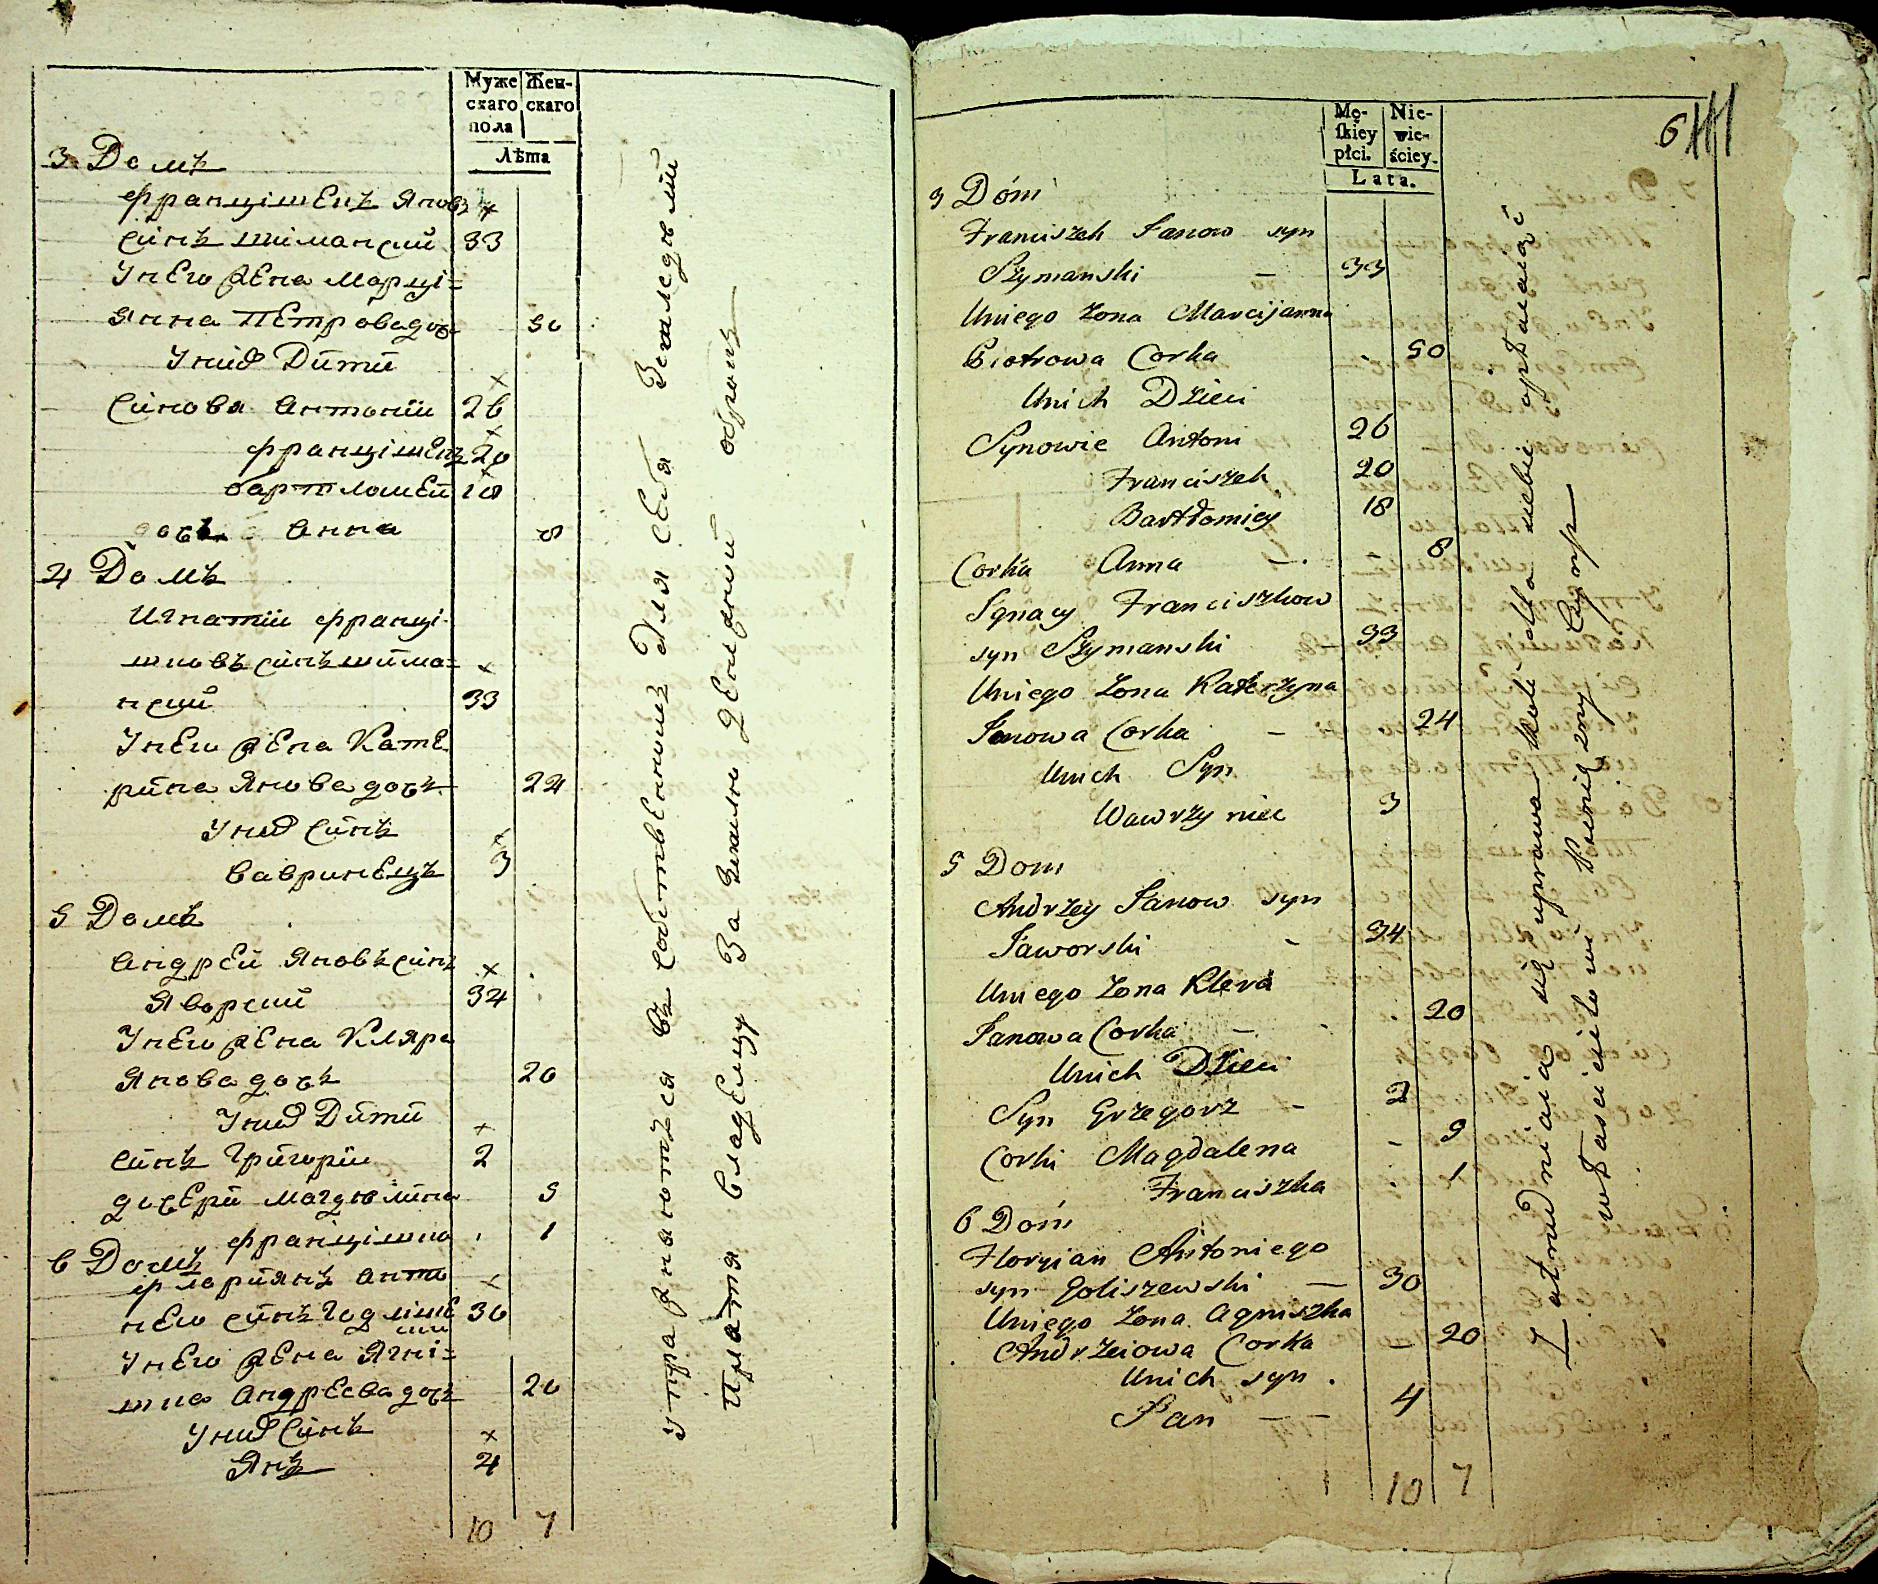 Муже
скаго
пола
Жен-
скаго
Лѣта
3 Домъ
францішекъ Яновъ
сінъ шіманскій 33
У него жена марці=
янна Петрова дочь 50
У нихъ Дити
Синовя антоній 26
францішекъ 20
бартломей 18
дочь анна 8
4 Домъ
Игнатій франці
шковъ сінъ шима=
нскій 33
У него жена Кате
рина Янова дочь 24
У нихъ синъ
вавринецъ 3
5 Домъ
андрей Яновъ синъ
Яворскій 34
У него жена Кляра
Янова дочь 20
У нихъ Дити
синъ Григорій 2
дочери магдолина 5
францішка 1
6 Домъ
флориянъ анто
него синъ Годліше
вскій 30
У него жена Ягні=
шка андреева дочь 20
У нихъ синъ
Янъ 4
10 7
упражняются въ собственномъ для себя земледѣлій
платя владелцу за землю денежний оброкъ
6
Mę-
ſkiey
płci.
Nie-
wie-
ściey.
Lata.
3 Dóm
Franciszek Janow syn
Szymanski — 33
Uniego Żona Marcijanna
Piotrowa Corka - 50
Unich Dzieci
Synowie Antoni 26
Franciszek 20
Bartłomiey 18
Corka Anna - 8
Ignacy Franciszkow
syn Szymanski — 33
Uniego Żona Katerzyna
Janowa Corka — 24
Unich Syn
Wawrzyniec 3
5 Dom
Andrzey Janow syn
Jaworski - 34
Uniego Żona Klera
Janowa Corka — 20
Unich Dzieci
Syn Grzegorz - 2
Corki Magdalena - 5
Franciszka 1
6 Dom
Floryian Antoniego
syn Goliszewski — 30
Uniego Żona Agniszka
Andrzeiowa Corka — 20
Unich syn
Jan — 4
10 7
Zatrudniaią się uprawą Roli dla siebie opłacaiąc
włascicielowi Pieniężny Czynsz